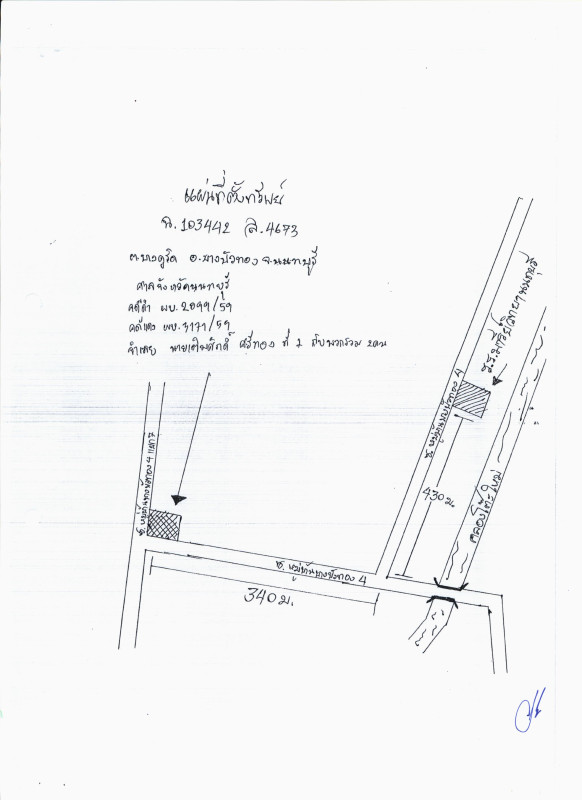 แผนที่ตั้งทรัพย์
ฉ.103442 ล.4673
ต.บางคูรัด อ.บางบัวทอง จ.นนทบุรี
ศาลจังหวัดนนทบุรี
คดีดำ ผบ.2099/59
คดีแดง ผบ.3171/59
จำเลย นายเติมศักดิ์ ศรีทอง ที่ 1 กับพวกรวม 2คน
ร.ร.
ซ. หมู่บ้านบางบัวทอง 4
430 ม.
คลองโต๊ะใหม่
ซ. หมู่บ้านบางบัวทอง 4
ซ. หมู่บ้านบางบัวทอง 4
340 ม.